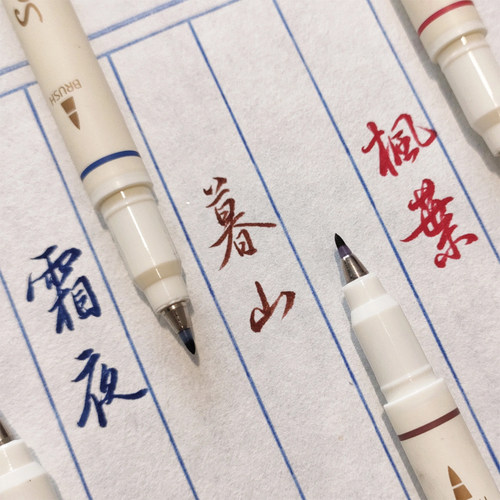 楓葉
暮山
霜夜
BRUSH